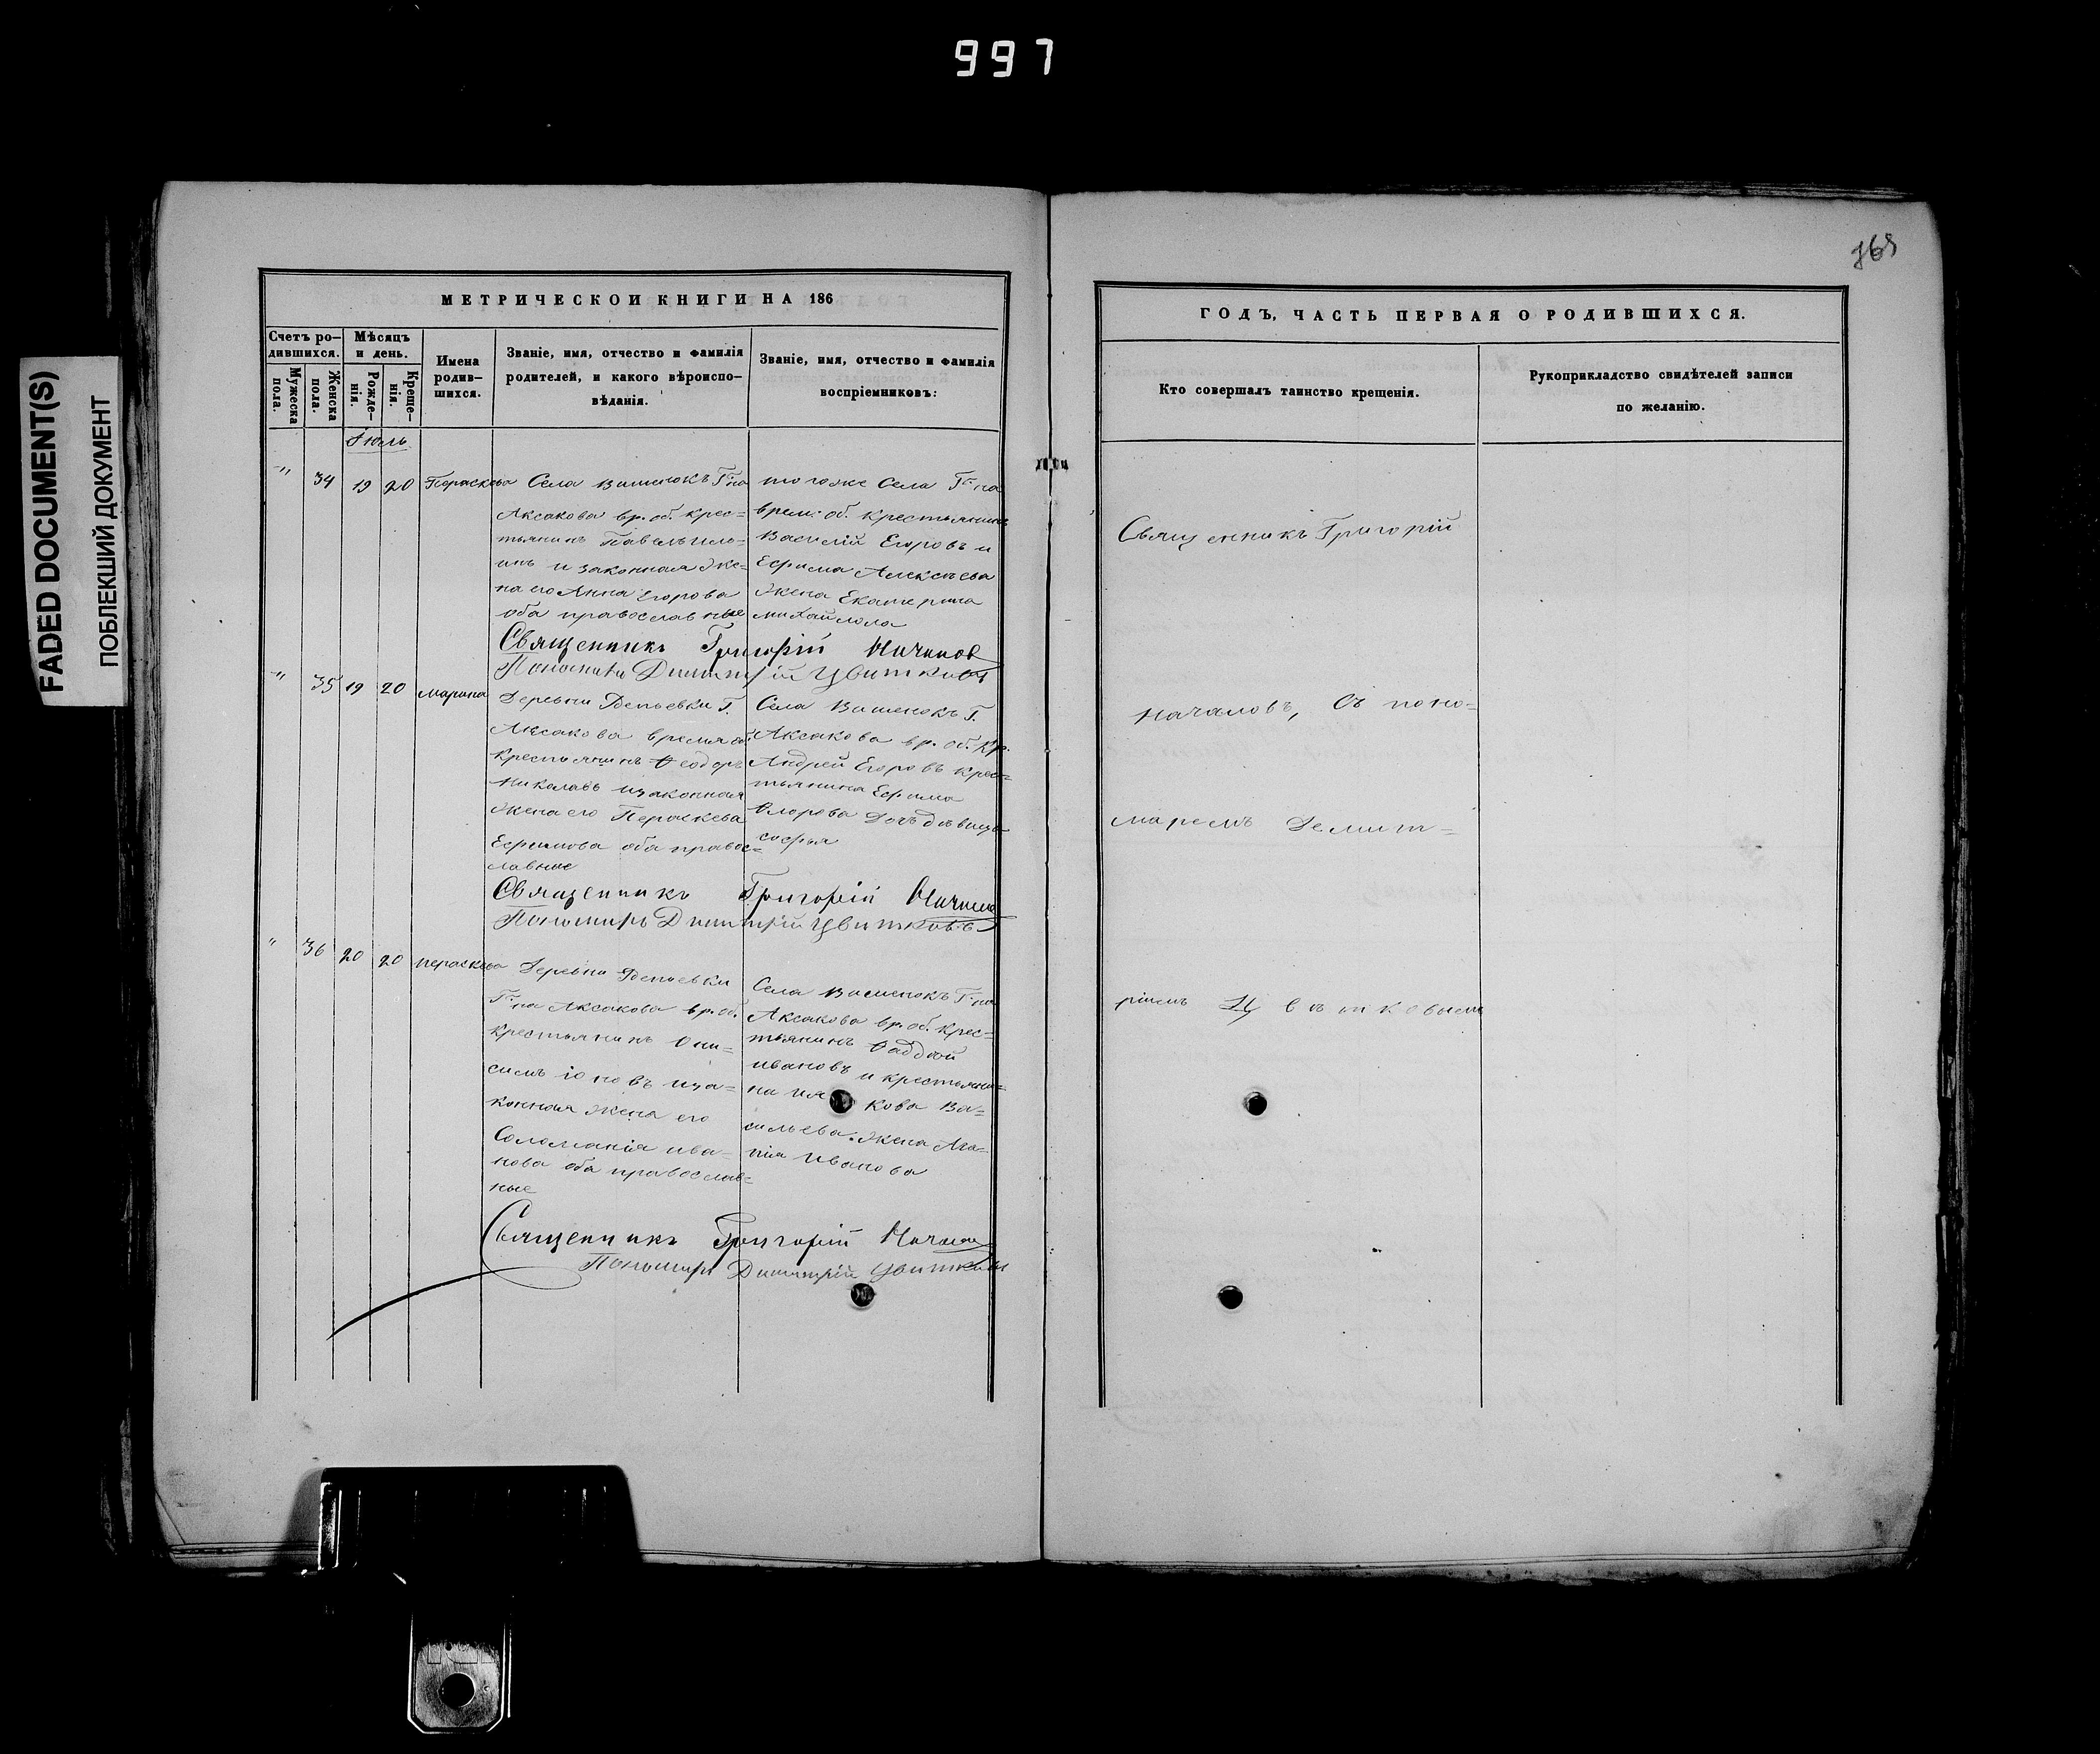 997
FADED DOCUMENT(S)
ПОБЛЕКШИЙ ДОКУМЕНТ
МЕТРИЧЕСКОИ КНИГИ НА 186
Счетъ ро-
дившихся.
Мужеска
пола.
Женска
пола.
Мѣсяцъ
и день.
Рожде-
нія.
Креще-
нія.
Имена
родив-
шихся.
Званіе, имя, отчество и фамилія
родителей, и какого вѣроиспо-
вѣданія.
Званіе, имя, отчество и фамилія
воспріемниковъ:
Іюль
" 34 19 20 Пераскева
Села Вишенокъ Г-на
Аксакова вр. об. крес=
тьянинъ Павелъ
инъ и законная же=
на его Анна Егорова
оба православные
тогоже Села Г-на
врем: об. крестьянинъ
Василій Егоровъ и
Ефима Алексѣева
жена Екатерина
Михайлова
Священникъ Григорій Началов
Пономарь Димитрій Цвитковъ
" 35 19 20 Марина
Деревни Репьевки Г.
Аксакова времен об.
крестьянинъ Ѳеодоръ
Николаевъ изаконная
жена его Пераскева
Ефимова оба правос=
лавные
Села Вишенокъ Г.
Аксакова вр. об. кр.
Андрей Егоровъ крес=
тьянина Ефима
дочь дѣвица
софья
Священникъ Григорій Начало
Пономарь Димитрій Цвитковъ
" 36 20 20 пераскева
Деревни Репьевки
Г-на Аксакова вр. об.
крестьянинъ Они=
симъ іоновъ иза=
конная жена его
Соломанія ива=
нова оба православ=
ные
Села Вишенокъ Г-на
Аксакова вр. об. крес=
тьянинъ Ѳаддѣй
ивановъ и крестьяни=
на кова Ва=
сильева жена Ага=
пія Иванова
Священникъ Григорій Начало
Пономарь Димитрій Цвитковъ
ГОДЪ, ЧАСТЬ ПЕРВАЯ О РОДИВШИХСЯ.
Кто совершалъ таинство крещенія.
Рукоприкладство свидѣтелей записи
по желанію.
Священникъ Григорій
Началовъ, Съ поно=
маремъ Демит=
ріемъ Цвѣтковымъ